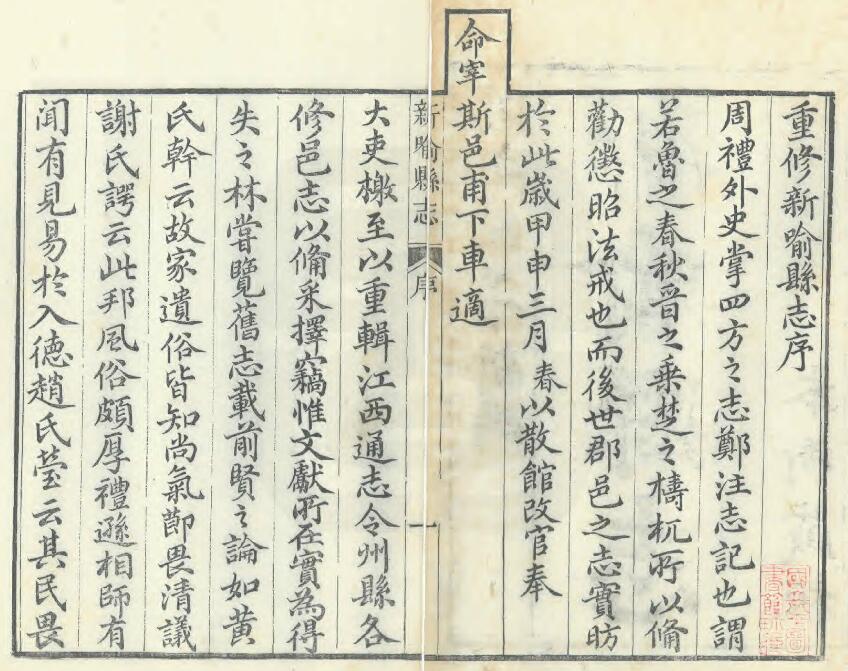 重修新喻縣志序
周禮外史掌四方之志鄭注志記也謂
若魯之春秋晉之乘楚之檮杌所以備
勸懲昭法戒也而後世郡邑之志實昉
於此歲甲申三月春以散館改官奉
命宰斯邑甫下車適
新喻縣志
序
一
大吏檄至以重輯江西通志令州縣各
修邑志以備采擇竊惟文獻所在實為得
失之林嘗覽舊志載前賢之論如黄
氏幹云故家遺俗皆知尚氣節畏清議
謝氏諤云此邦風俗頗厚禮遜相師有
聞有見易於入德趙氏瑩云其民畏